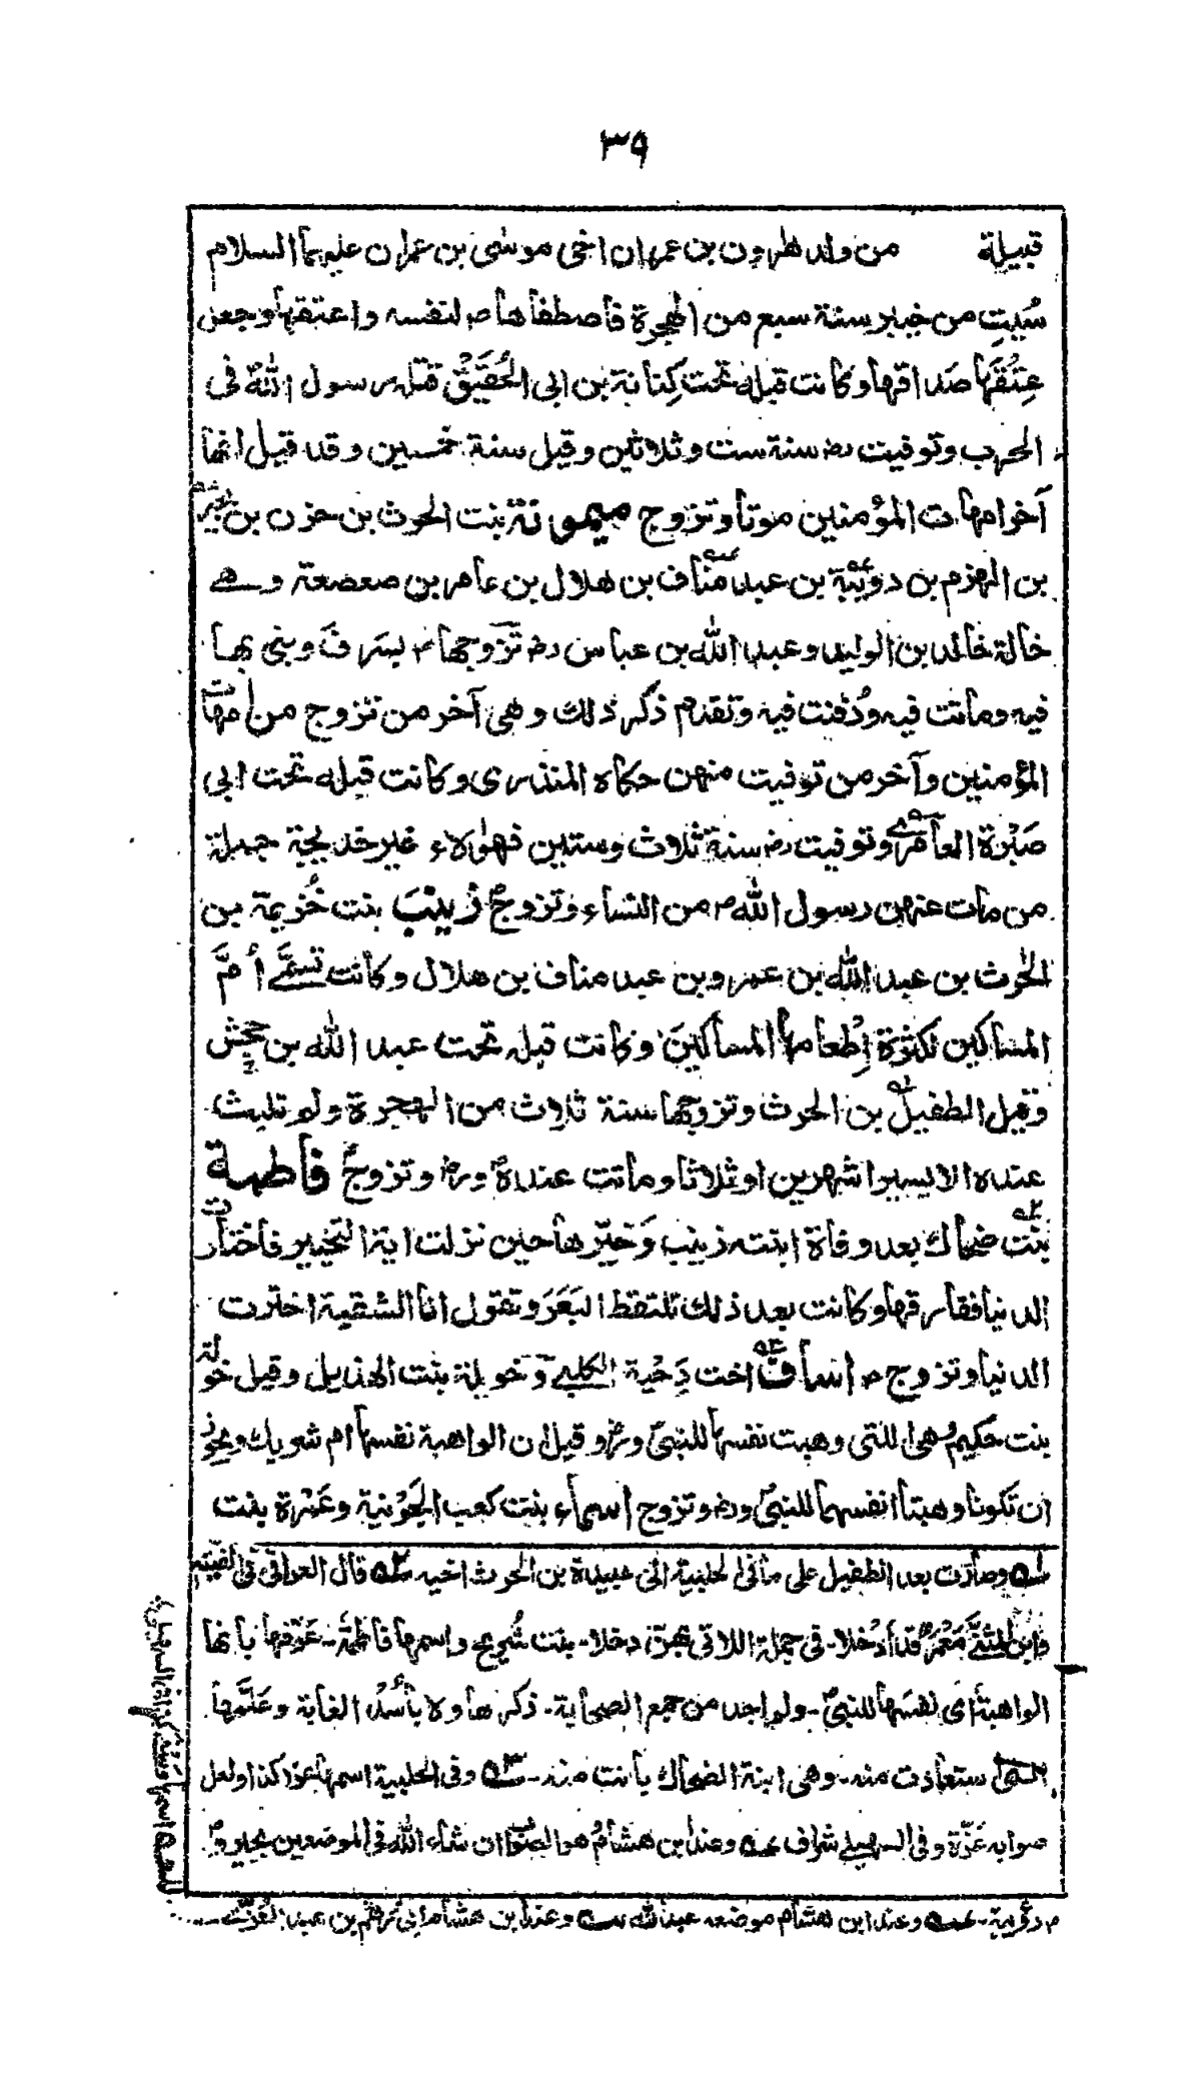 ٣٩
قبيلة من ولد هرون بن عمران اخى موسى بن عمران عليهما السلام
سُبِيت من خيبر سنة سبع من الهجرة فاصطفاها ص لنفسه واعتقها وجعل
عِتْقَها صَداقها وكانت قبله تحت كِنانة بن ابى الحُقَيْق قتله رسول اللهؐ فى
الحرب وتوفيت رض سنة ست وثلاثين وقيل سنة خمسين وقد قيل انها
آخر امهات المؤمنين موتا وتزوج ميمونة بنت الحرث بن حزن بن بجير
بن الهزم بن دؤيبة بن عبد مناف بن هلال بن عامر بن صعصعة وهى
خالة خالد بن الوليد وعبد الله بن عباس رض تزوجها ص بسَرِف وبنى بها
فيه وماتت فيه ودُفنت فيه وتقدم ذكر ذلك وهى آخر من تزوج من أمهات
المؤمنين وآخر من توفيت منهن حكاه المنذرى وكانت قبله تحت ابى
صَبْرة العامرى وتوفيت رض سنة ثلاث وستين فهؤلاء غير خديجة جملة
من مات عنهن رسول الله ص من النساء وتزوجؐ زينب بنت خُزيمة بن
الحرث بن عبد الله بن عمرو بن عبد مناف بن هلال وكانت تسمَّى أمَّ
المساكين لكثرة إطعامها المساكينَ وكانت قبله تحت عبد الله بن جحش
وقيل الطفيل بن الحرث وتزوجها سنة ثلاث من الهجرة ولم تلبث
عنده الا يسيرا شهرين او ثلاثا وماتت عندهؐ ورض وتزوجؐ فاطمة
بنت ضحاك بعد وفاة ابنته زينب وَخيّرها حين نزلت اية التخيير فاختارت
الدنيا ففارقها وكانت بعد ذلك تلتقط البَعَرَ وتقول انا الشقية اخترت
الدنيا وتزوج ص اساف اخت دِحْية الكلبى وخويلة بنت الهذيل وقيل خولة
بنت حكيم وهى اللتى وهبت نفسها للنبىؐ ورض وقيل ان الواهبة نفسها ام شريك ويجوز
ان تكونا وهبتا انفسهما للنبىؐ ورض وتزوج اسماء بنت كعب الجَوْنية وعَمْرة بنت
له وصارت بعد الطفيل على ما فى الحلبية الى عبيدة بن الحرث اخيه ٢ه قال العراقى فى الفيّته
وابن المثنَّى مَعْمَرٌ قد أدْخلا۔ فى جملة اللاتى بهن دخلا۔ بنت شُريح واسمها فاطمةٌ۔ عَرّفها بانها
الواهبةُ اى نفسَها للنبىؐ۔ ولم اجد من جمع الصحابة۔ ذكرها ولا بأُسُد الغابة وعَلَّها
التى استعاذت منه۔ وهى ابنة الضحاك بانت منه۔ ٣ه وفى الحلبية اسمها غزا كذا ولعل
صوابه عَزّة وفى السهيلى شراف ٤ه وعند ابن هشام هو الصواب ان شاء الله فى الموضعين بجيروم
م دؤيبة۔ ٤ه وعند ابن هشام موضعه عبد الله ٥ه وعند ابن هشام ابى رهم بن عبد العُزّى